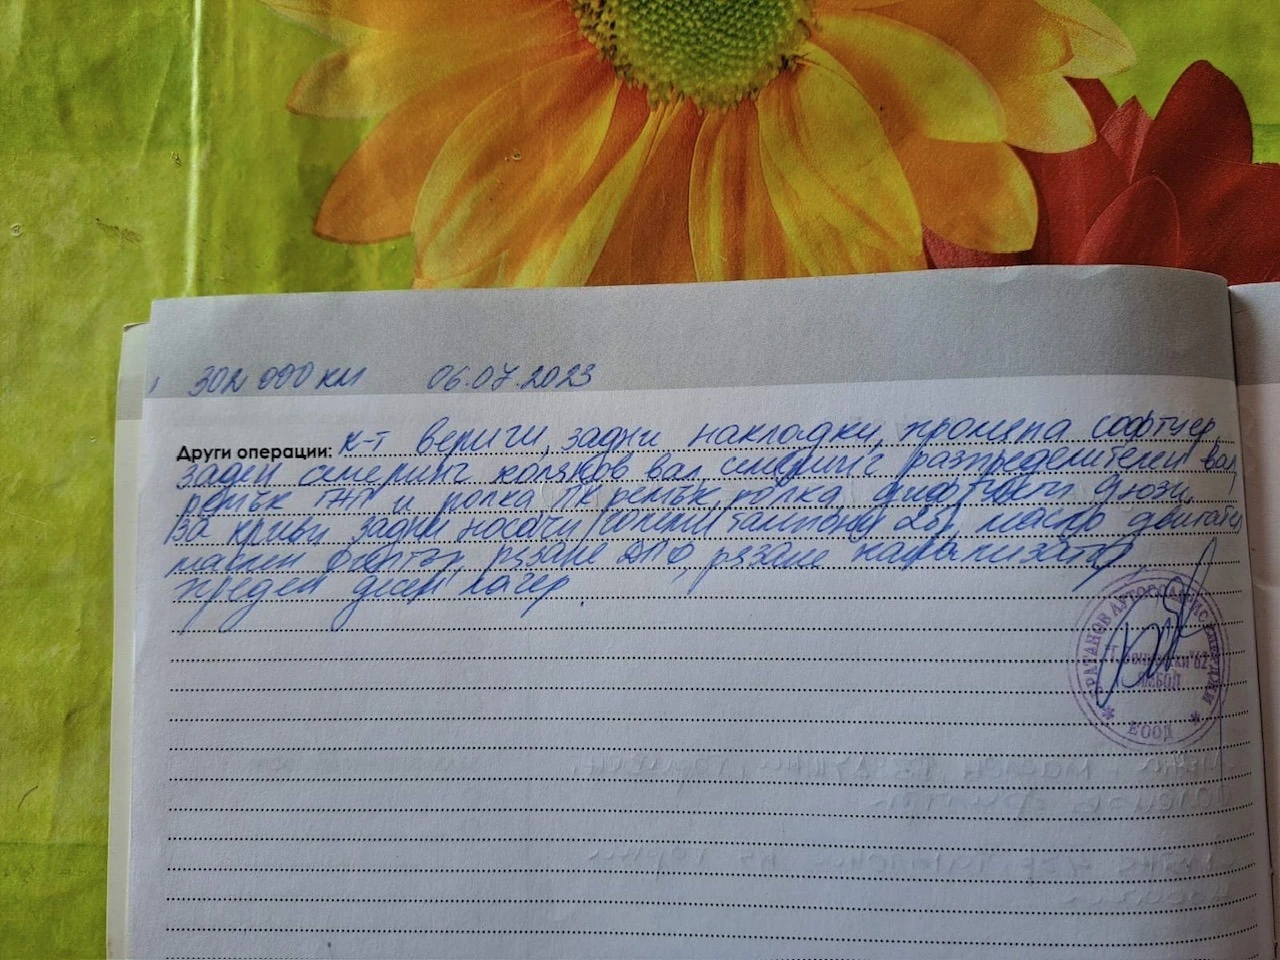 302 000 км 06.07.2023
Други операции: к-т вериги, задни накладки, промяна софтуер,
заден семеринг колянов вал, семеринг разпределителен вал,
ремък ГРМ и ролка, ПК ремък, ролка, дюзи,
за криви задни носачи тампони 2бр, масло двигател,
маслен филтър, рязане ДПФ, рязане катализатор,
преден десен лагер.
БРАТАНОВ АУТОСЕРВИС
ЕООД